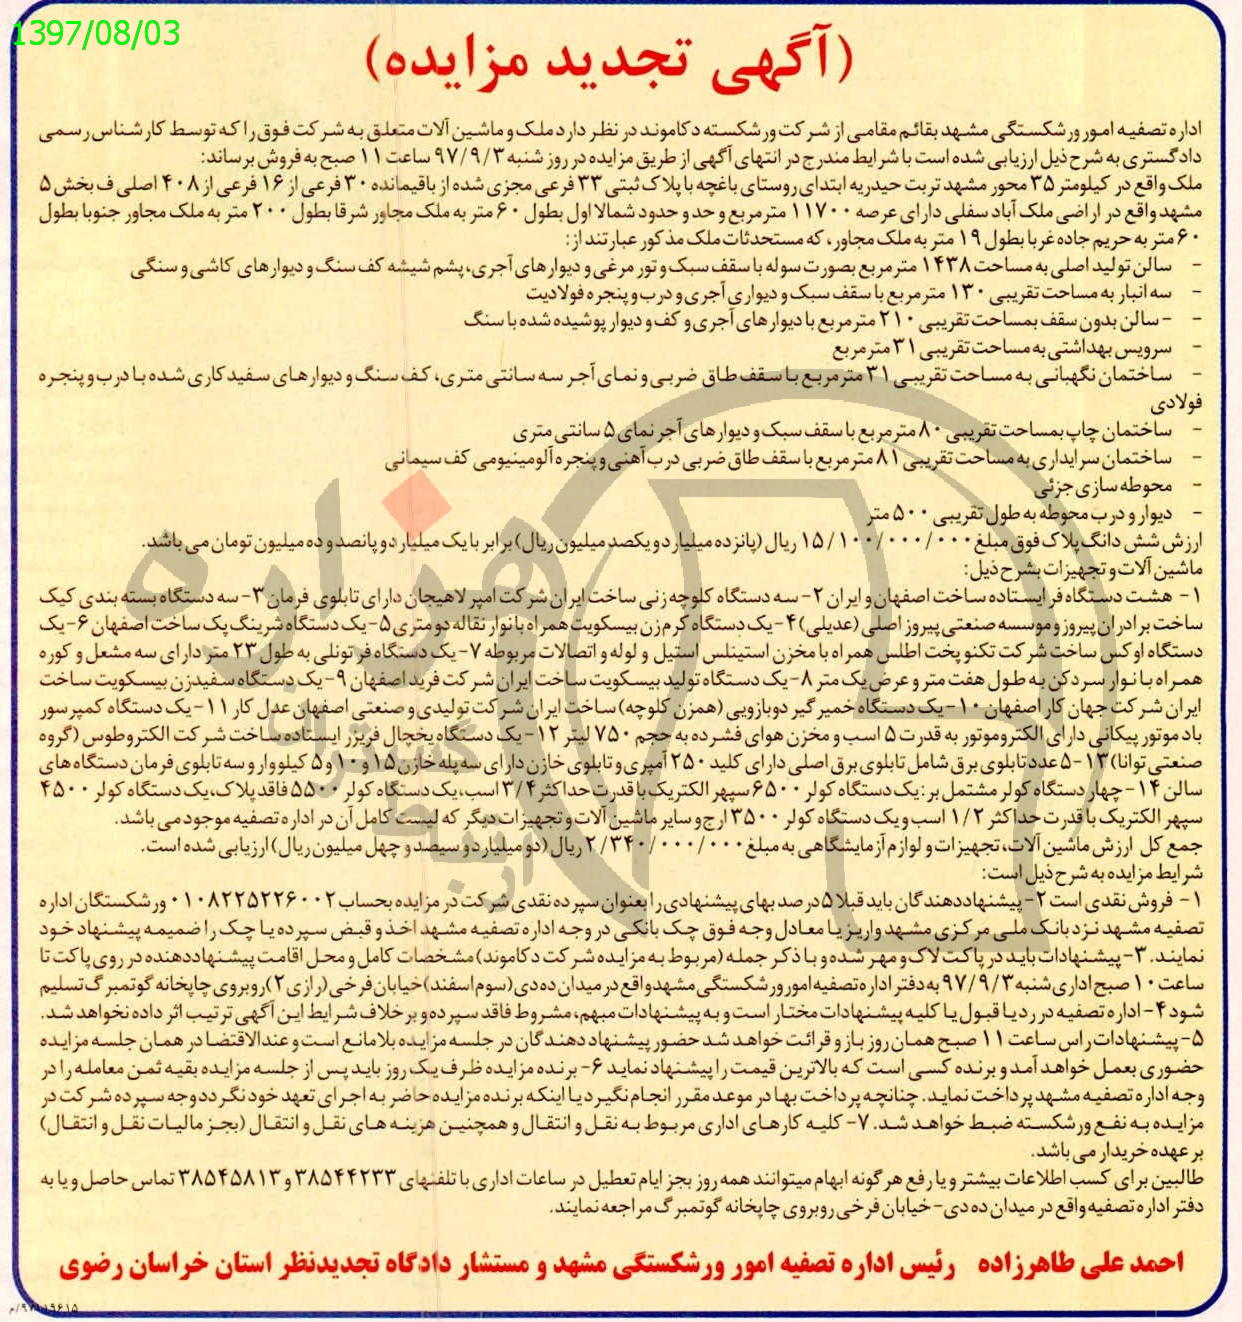 1397/08/03
(آگهی تجدید مزایده)
اداره تصفیه امور ورشکستگی مشهد بقائم مقامی از شرکت ورشکسته دکاموند در نظر دارد ملک و ماشین آلات متعلق به شرکت فوق را که توسط کارشناس رسمی
دادگستری به شرح ذیل ارزیابی شده است با شرایط مندرج در انتهای آگهی از طریق مزایده در روز شنبه ۹۷/۹/۳ ساعت ۱۱ صبح به فروش برساند:
ملک واقع در کیلومتر ۳۵ محور مشهد تربت حیدریه ابتدای روستای باغچه با پلاک ثبتی ۳۳ فرعی مجزی شده از باقیمانده ۳۰ فرعی از ۱۶ فرعی از ۴۰۸ اصلی ف بخش ۵
مشهد واقع در اراضی ملک آباد سفلی دارای عرصه ۱۱۷۰۰ مترمربع و حد و حدود شمالا اول بطول ۶۰ متر به ملک مجاور شرقا بطول ۲۰۰ متر به ملک مجاور جنوبا بطول
۶۰ متر به حریم جاده غربا بطول ۱۹ متر به ملک مجاور، که مستحدثات ملک مذکور عبارتند از:
- سالن تولید اصلی به مساحت ۱۴۳۸ مترمربع بصورت سوله با سقف سبک و تور مرغی و دیوارهای آجری، پشم شیشه کف سنگ و دیوارهای کاشی و سنگی
- سه انبار به مساحت تقریبی ۱۳۰ مترمربع با سقف سبک و دیواری آجری و درب و پنجره فولادیت
- -سالن بدون سقف بمساحت تقریبی ۲۱۰ مترمربع با دیوارهای آجری و کف و دیوار پوشیده شده با سنگ
- سرویس بهداشتی به مساحت تقریبی ۳۱ مترمربع
- ساختمان نگهبانی به مساحت تقریبی ۳۱ مترمربع با سقف طاق ضربی و نمای آجر سه سانتی متری، کف سنگ و دیوارهای سفیدکاری شده با درب و پنجره
فولادی
- ساختمان چاپ بمساحت تقریبی ۸۰ مترمربع با سقف سبک و دیوارهای آجر نمای ۵ سانتی متری
- ساختمان سرایداری به مساحت تقریبی ۸۱ مترمربع با سقف طاق ضربی درب آهنی و پنجره آلومینیومی کف سیمانی
- محوطه سازی جزئی
- دیوار و درب محوطه به طول تقریبی ۵۰۰ متر
ارزش شش دانگ پلاک فوق مبلغ ۱۵/۱۰۰/۰۰۰/۰۰۰ ریال (پانزده میلیارد و یکصد میلیون ریال) برابر با یک میلیارد و پانصد و ده میلیون تومان می باشد.
ماشین آلات و تجهیزات بشرح ذیل:
۱- هشت دستگاه فر ایستاده ساخت اصفهان و ایران ۲- سه دستگاه کلوچه زنی ساخت ایران شرکت امپر لاهیجان دارای تابلوی فرمان ۳- سه دستگاه بسته بندی کیک
ساخت برادران پیروز و موسسه صنعتی پیروز اصلی (عدیلی) ۴- یک دستگاه کرم زن بیسکویت همراه با نوار نقاله دو متری ۵- یک دستگاه شرینگ پک ساخت اصفهان ۶- یک
دستگاه اوکس ساخت شرکت تکنو پخت اطلس همراه با مخزن استینلس استیل و لوله و اتصالات مربوطه ۷- یک دستگاه فر تونلی به طول ۲۳ متر دارای سه مشعل و کوره
همراه با نوار سردکن به طول هفت متر و عرض یک متر ۸- یک دستگاه تولید بیسکویت ساخت ایران شرکت فرید اصفهان ۹- یک دستگاه سفیدزن بیسکویت ساخت
ایران شرکت جهان کار اصفهان ۱۰- یک دستگاه خمیر گیر دوبازویی (همزن کلوچه) ساخت ایران شرکت تولیدی و صنعتی اصفهان عدل کار ۱۱- یک دستگاه کمپرسور
باد موتور پیکانی دارای الکتروموتور به قدرت ۵ اسب و مخزن هوای فشرده به حجم ۷۵۰ لیتر ۱۲- یک دستگاه یخچال فریزر ایستاده ساخت شرکت الکتروطوس (گروه
صنعتی توانا) ۱۳- ۵ عدد تابلوی برق شامل تابلوی برق اصلی دارای کلید ۲۵۰ آمپری و تابلوی خازن دارای سه پله خازن ۱۵ و ۱۰ و ۵ کیلووار و سه تابلوی فرمان دستگاه های
سالن ۱۴- چهار دستگاه کولر مشتمل بر: یک دستگاه کولر ۶۵۰۰ سپهر الکتریک با قدرت حداکثر ۳/۴ اسب، یک دستگاه کولر ۵۵۰۰ فاقد پلاک، یک دستگاه کولر ۴۵۰۰
سپهر الکتریک با قدرت حداکثر ۱/۲ اسب و یک دستگاه کولر ۳۵۰۰ ارج و سایر ماشین آلات و تجهیزات دیگر که لیست کامل آن در اداره تصفیه موجود می باشد.
جمع کل ارزش ماشین آلات، تجهیزات و لوازم آزمایشگاهی به مبلغ ۲/۳۴۰/۰۰۰/۰۰۰ ریال (دو میلیارد و سیصد و چهل میلیون ریال) ارزیابی شده است.
شرایط مزایده به شرح ذیل است:
۱- فروش نقدی است ۲- پیشنهاددهندگان باید قبلا ۵ درصد بهای پیشنهادی را بعنوان سپرده نقدی شرکت در مزایده بحساب ۰۱۰۸۲۲۵۲۲۶۰۰۲ ورشکستگان اداره
تصفیه مشهد نزد بانک ملی مرکزی مشهد واریز یا معادل وجه فوق چک بانکی در وجه اداره تصفیه مشهد اخذ و قبض سپرده یا چک را ضمیمه پیشنهاد خود
نمایند. ۳- پیشنهادات باید در پاکت لاک و مهر شده و با ذکر جمله (مربوط به مزایده شرکت دکاموند) مشخصات کامل و محل اقامت پیشنهاددهنده در روی پاکت تا
ساعت ۱۰ صبح اداری شنبه ۹۷/۹/۳ به دفتر اداره تصفیه امور ورشکستگی مشهد واقع در میدان ده دی (سوم اسفند) خیابان فرخی (رازی ۲) روبروی چاپخانه گوتمبرگ تسلیم
شود ۴- اداره تصفیه در رد یا قبول یا کلیه پیشنهادات مختار است و به پیشنهادات مبهم، مشروط فاقد سپرده و برخلاف شرایط این آگهی ترتیب اثر داده نخواهد شد.
۵- پیشنهادات راس ساعت ۱۱ صبح همان روز باز و قرائت خواهد شد حضور پیشنهاد دهندگان در جلسه مزایده بلامانع است و عندالاقتضا در همان جلسه مزایده
حضوری بعمل خواهد آمد و برنده کسی است که بالاترین قیمت را پیشنهاد نماید ۶- برنده مزایده ظرف یک روز باید پس از جلسه مزایده بقیه ثمن معامله را در
وجه اداره تصفیه مشهد پرداخت نماید. چنانچه پرداخت بها در موعد مقرر انجام نگیرد یا اینکه برنده مزایده حاضر به اجرای تعهد خود نگردد وجه سپرده شرکت در
مزایده به نفع ورشکسته ضبط خواهد شد. ۷- کلیه کارهای اداری مربوط به نقل و انتقال و همچنین هزینه های نقل و انتقال (بجز مالیات نقل و انتقال)
بر عهده خریدار می باشد.
طالبین برای کسب اطلاعات بیشتر و یا رفع هر گونه ابهام میتوانند همه روز بجز ایام تعطیل در ساعات اداری با تلفنهای ۳۸۵۴۴۲۳۳ و ۳۸۵۴۵۸۱۳ تماس حاصل و یا به
دفتر اداره تصفیه واقع در میدان ده دی- خیابان فرخی روبروی چاپخانه گوتمبرگ مراجعه نمایند.
احمد علی طاهرزاده رئیس اداره تصفیه امور ورشکستگی مشهد و مستشار دادگاه تجدیدنظر استان خراسان رضوی
هزاره